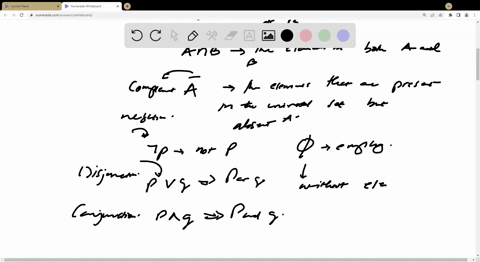 numerade.com/answers/whiteboard
A∩B → the elements in both A and
B
Complement Ā → the elements that are present
in the universal set but
negation. absent A.
¬p → not P ϕ → empty.
Disjunction. P ∨ q ⇒ P or q without ele
Conjunction. P ∧ q ⇒ P and q.